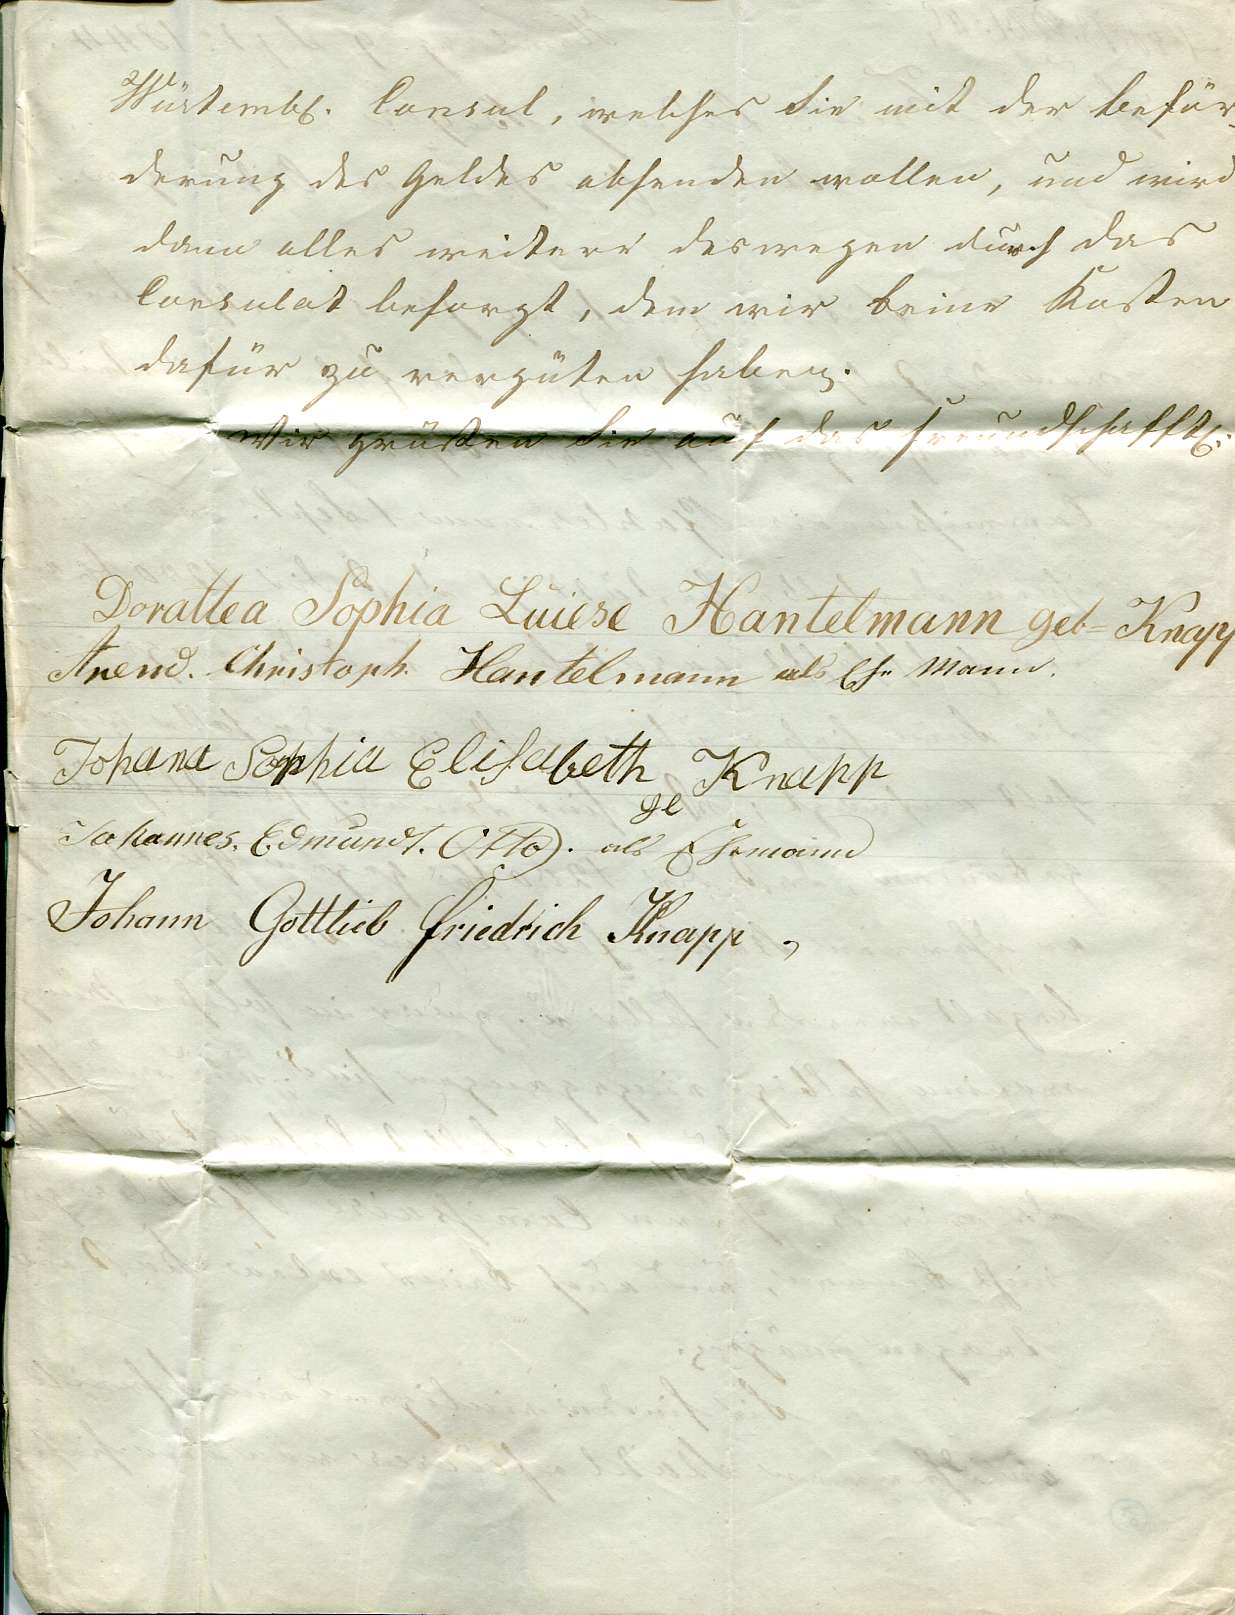 Würtembg. Consul, welches Sie mit der Beför-
derung des Geldes absenden wollen, und wird
dann alles weitere deswegen durch das
Consulat besorgt, dem wir keine Kosten
dafür zu vergüten haben.
Wir grüßen Sie auf das freundschafftl.
Dorattea Sophia Luiese Hantelmann geb= Knapp
Arend. Christoph. Hantelmann als Ehe Mann.
Johana Sophia Elisabeth Knapp
ge
Johannes. Edmundt. Otto. als Ehemann
Johann Gottlieb friedrich Knapp